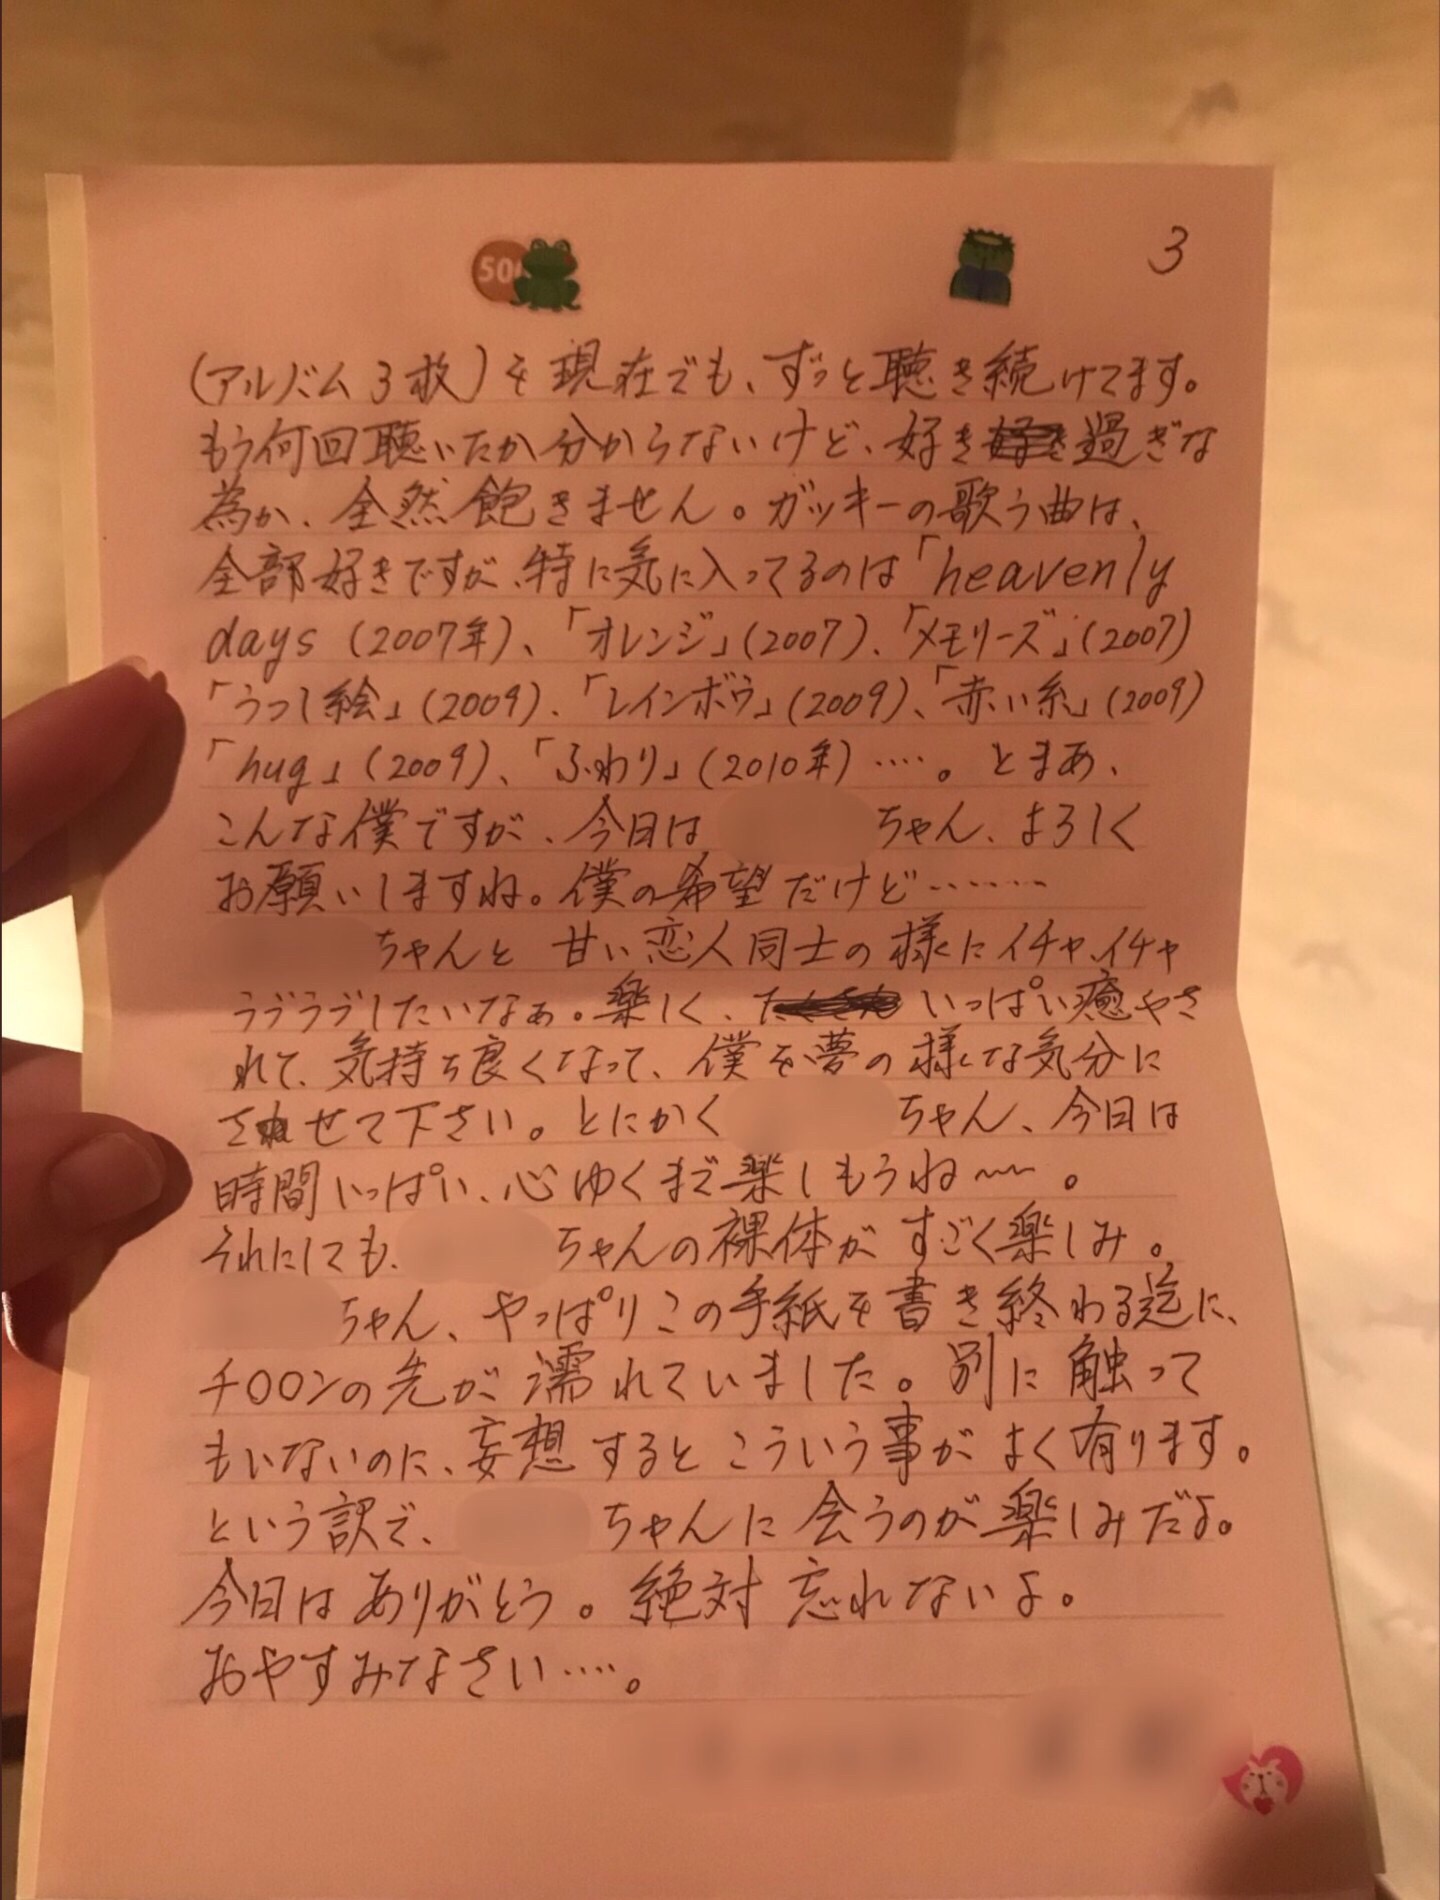 50
3
(アルバム3枚)を現在でも、ずっと聴き続けてます。
もう何回聴いたか分からないけど、好き過ぎな
為か、全然飽きません。ガッキーの歌う曲は、
全部好きですが、特に気に入ってるのは「heavenly
days (2007年)、「オレンジ」(2007)、「メモリーズ」(2007)
「うつし絵」(2009)、「レインボウ」(2009)、「赤い糸」(2009)
「hug」(2009)、「ふわり」(2010年)‥‥。とまあ、
こんな僕ですが、今日は ちゃん、よろしく
お願いしますね。僕の希望だけど‥‥‥‥
ちゃんと甘い恋人同士の様にイチャイチャ
ラブラブしたいなぁ。楽しく、いっぱい癒やさ
れて、気持ち良くなって、僕を夢の様な気分に
させて下さい。とにかく ちゃん、今日は
時間いっぱい、心ゆくまで楽しもうね〜〜。
それにしても、 ちゃんの裸体がすごく楽しみ。
ちゃん、やっぱりこの手紙を書き終わる迄に、
チ〇〇ンの先が濡れていました。別に触って
もいないのに、妄想するとこういう事がよく有ります。
という訳で、 ちゃんに会うのが楽しみだよ。
今日はありがとう。絶対忘れないよ。
おやすみなさい‥‥。